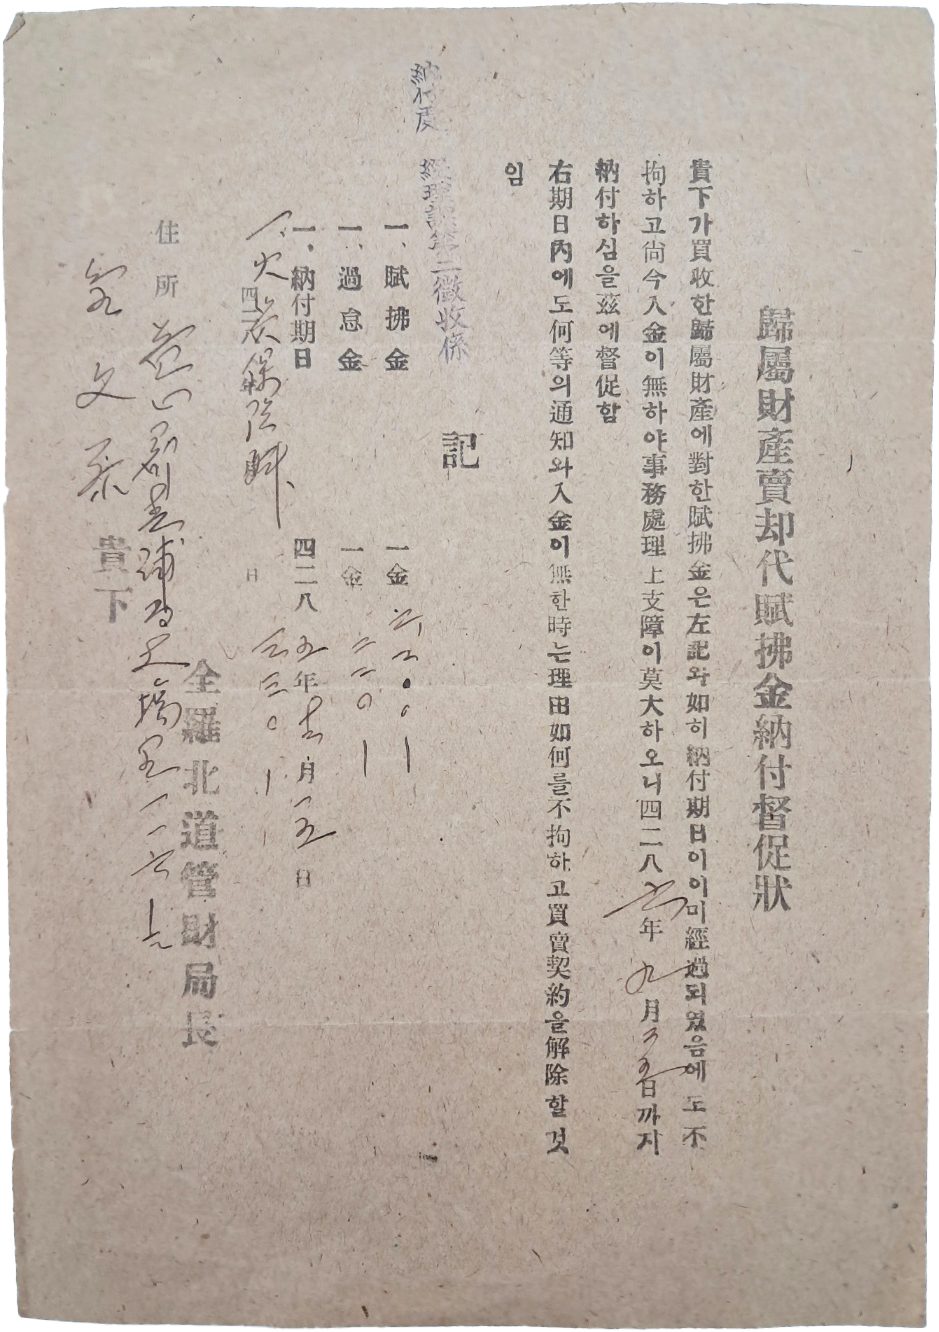 歸屬財產賣却代賦拂金納付督促狀
貴下가買收한歸屬財產에對한賦拂金은左記와如히納付期日이이미經過되였음에도不
拘하고尙今入金이無하야事務處理上支障이莫大하오니四二八六年九月二五日까지
納付하심을玆에督促함
右期日內에도何等의通知와入金이無한時는理由如何를不拘하고買賣契約을解除할것
임
記
納付處 經理課第二徵收係
一、賦拂金 一金
一、過怠金 一金 二二〇
一、納付期日 四二八五年 月一五日
一、火災保險料 三三〇
全羅北道管財局長
住所
貴下